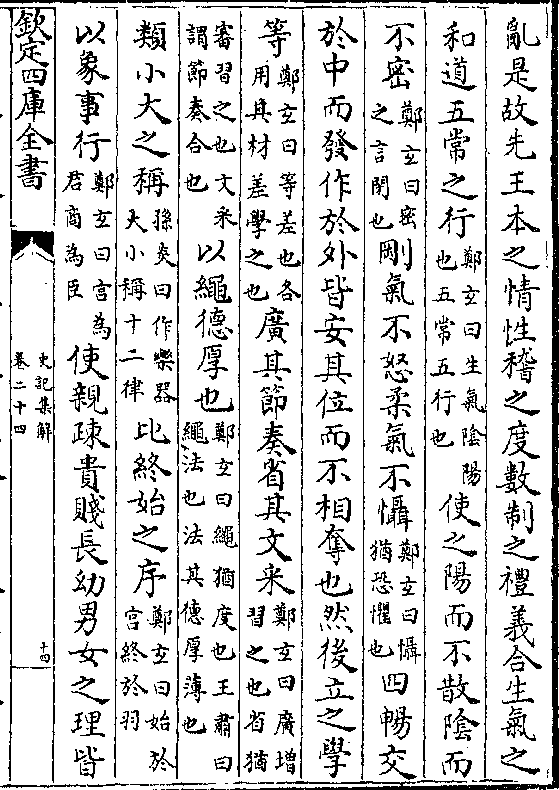 亂是故先王本之情性稽之度數制之禮義合生氣之
和道五常之行鄭玄曰生氣陰陽也五常五行也使之陽而不散陰而
不密鄭玄曰密之言閉也剛氣不怒柔氣不懾鄭玄曰懾猶恐懼也四暢交
於中而發作於外皆安其位而不相奪也然後立之學
等鄭玄曰等差也各用其材差學之也廣其節奏省其文采鄭玄曰廣增習之也省猶
審習之也文采謂節奏合也以繩德厚也鄭玄曰繩猶度也王肅曰繩法也法其德厚薄也
類小大之稱孫炎曰作樂器大小稱十二律比終始之序鄭玄曰始於宮終於羽
以象事行鄭玄曰宮為君商為臣使親疎貴賤長幼男女之理皆
欽定四庫全書
史記集解
卷二十四
十四